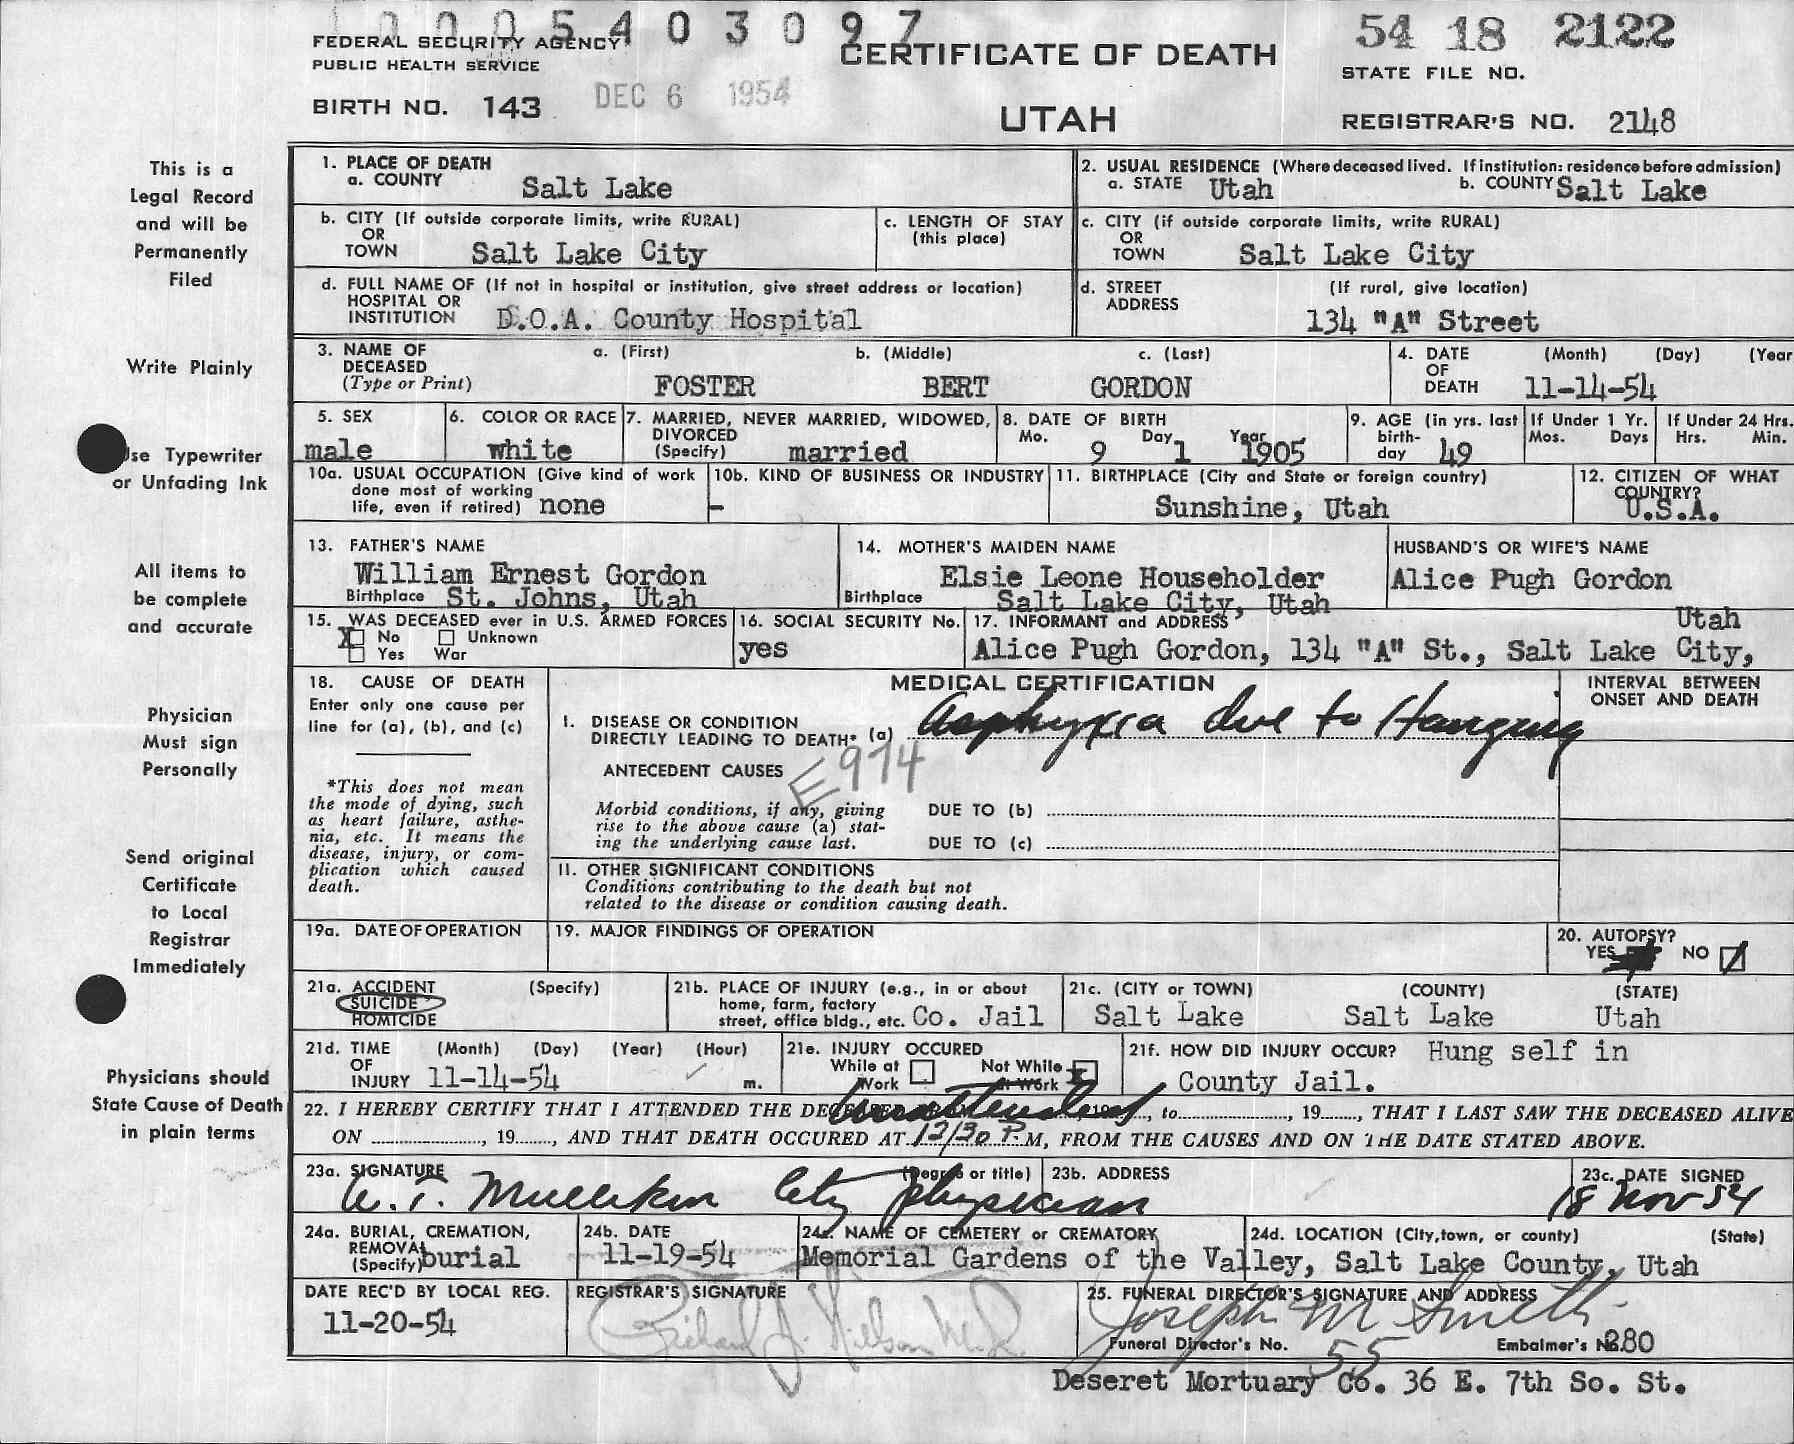 10005403097
54 18 2122
FEDERAL SECURITY AGENCY
PUBLIC HEALTH SERVICE
CERTIFICATE OF DEATH
STATE FILE NO.
BIRTH NO. 143
DEC 6 1954
UTAH
REGISTRAR'S NO. 2148
This is a
Legal Record
and will be
Permanently
Filed
Write Plainly
Use Typewriter
or Unfading Ink
All items to
be complete
and accurate
Physician
Must sign
Personally
Send original
Certificate
to Local
Registrar
Immediately
Physicians should
State Cause of Death
in plain terms
1. PLACE OF DEATH
a. COUNTY Salt Lake
2. USUAL RESIDENCE (Where deceased lived. If institution: residence before admission)
a. STATE Utah b. COUNTY Salt Lake
b. CITY (If outside corporate limits, write RURAL)
OR
TOWN Salt Lake City
c. LENGTH OF STAY
(this place)
c. CITY (if outside corporate limits, write RURAL)
OR
TOWN Salt Lake City
d. FULL NAME OF (If not in hospital or institution, give street address or location)
HOSPITAL OR
INSTITUTION D.O.A. County Hospital
d. STREET (If rural, give location)
ADDRESS
134 "A" Street
3. NAME OF DECEASED
(Type or Print)
a. (First) b. (Middle) c. (Last)
FOSTER BERT GORDON
4. DATE OF DEATH (Month) (Day) (Year
11-14-54
5. SEX
male
6. COLOR OR RACE
white
7. MARRIED, NEVER MARRIED, WIDOWED,
DIVORCED
(Specify) married
8. DATE OF BIRTH
Mo. 9 Day 1 Year 1905
9. AGE (in yrs. last
birth-
day 49
If Under 1 Yr.
Mos. Days
If Under 24 Hrs.
Hrs. Min.
10a. USUAL OCCUPATION (Give kind of work
done most of working
life, even if retired) none
10b. KIND OF BUSINESS OR INDUSTRY
-
11. BIRTHPLACE (City and State or foreign country)
Sunshine, Utah
12. CITIZEN OF WHAT
COUNTRY?
U.S.A.
13. FATHER'S NAME
William Ernest Gordon
Birthplace St. Johns, Utah
14. MOTHER'S MAIDEN NAME
Elsie Leone Householder
Birthplace Salt Lake City, Utah
HUSBAND'S OR WIFE'S NAME
Alice Pugh Gordon
15. WAS DECEASED ever in U.S. ARMED FORCES
X No Unknown
Yes War
16. SOCIAL SECURITY No.
yes
17. INFORMANT and ADDRESS
Utah
Alice Pugh Gordon, 134 "A" St., Salt Lake City,
18. CAUSE OF DEATH
Enter only one cause per
line for (a), (b), and (c)
*This does not mean
the mode of dying, such
as heart failure, asthe-
nia, etc. It means the
disease, injury, or com-
plication which caused
death.
MEDICAL CERTIFICATION
INTERVAL BETWEEN
ONSET AND DEATH
I. DISEASE OR CONDITION
DIRECTLY LEADING TO DEATH* (a) Asphyxia due to Hanging
ANTECEDENT CAUSES
E974
Morbid conditions, if any, giving
rise to the above cause (a) stat-
ing the underlying cause last.
DUE TO (b)
DUE TO (c)
II. OTHER SIGNIFICANT CONDITIONS
Conditions contributing to the death but not
related to the disease or condition causing death.
19a. DATE OF OPERATION
19. MAJOR FINDINGS OF OPERATION
20. AUTOPSY?
YES NO
21a. ACCIDENT (Specify)
SUICIDE
HOMICIDE
21b. PLACE OF INJURY (e.g., in or about
home, farm, factory
street, office bldg., etc. Co. Jail
21c. (CITY or TOWN) (COUNTY) (STATE)
Salt Lake Salt Lake Utah
21d. TIME (Month) (Day) (Year) (Hour)
OF
INJURY 11-14-54 m.
21e. INJURY OCCURED
While at Work
Not While at Work X
21f. HOW DID INJURY OCCUR? Hung self in
County Jail.
22. I HEREBY CERTIFY THAT I ATTENDED THE DECEASED unattended, to, 19, THAT I LAST SAW THE DECEASED ALIVE
ON, 19, AND THAT DEATH OCCURED AT 12/30 P.M, FROM THE CAUSES AND ON THE DATE STATED ABOVE.
23a. SIGNATURE (Degree or title)
W. T. Mullikin City physician
23b. ADDRESS
23c. DATE SIGNED
18 Nov 54
24a. BURIAL, CREMATION,
REMOVAL
(Specify) burial
24b. DATE
11-19-54
24c. NAME OF CEMETERY or CREMATORY
24d. LOCATION (City, town, or county) (State)
Memorial Gardens of the Valley, Salt Lake County, Utah
DATE REC'D BY LOCAL REG.
11-20-54
REGISTRAR'S SIGNATURE
Richard J. Nilson M.D.
25. FUNERAL DIRECTOR'S SIGNATURE AND ADDRESS
Joseph M Smith
Funeral Director's No. 55
Embalmer's No. 380
Deseret Mortuary Co. 36 E. 7th So. St.